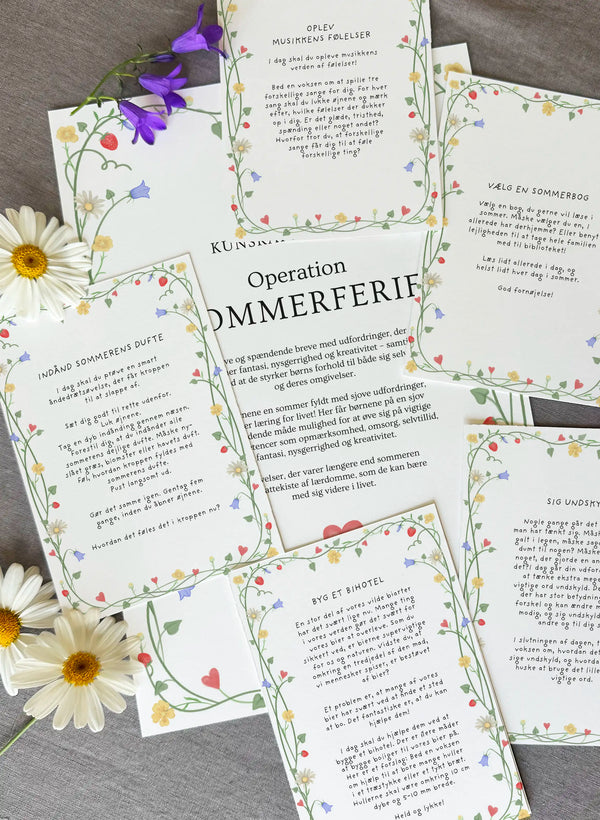 OPLEV
MUSIKKENS FØLELSER
I dag skal du opleve musikkens
verden af følelser!
Bed en voksen om at spille tre
forskellige sange for dig. For hver
sang skal du lukke øjnene og mærk
efter, hvilke følelser der dukker
op i dig. Er det glæde, tristhed,
spænding eller noget andet?
Hvorfor tror du, at forskellige
sange får dig til at føle
forskellige ting?
VÆLG EN SOMMERBOG
Vælg en bog, du gerne vil læse i
sommer. Måske vælger du en, I
allerede har derhjemme? Eller benyt
lejligheden til at tage hele familien
med til biblioteket!
Læs lidt allerede i dag, og
helst lidt hver dag i sommer.
God fornøjelse!
Operation
OMMERFERIE
ve og spændende breve med udfordringer, der
er fantasi, nysgerrighed og kreativitet – samti
d at de styrker børns forhold til både sig selv
og deres omgivelser.
nene en sommer fyldt med sjove udfordringer,
er læring for livet! Her får børnene på en sjov
dende måde mulighed for at øve sig på vigtige
tencer som opmærksomhed, omsorg, selvtillid,
fantasi, nysgerrighed og kreativitet.
elser, der varer længere end sommeren
attekiste af lærdomme, som de kan bære
med sig videre i livet.
INDÅND SOMMERENS DUFTE
I dag skal du prøve en smart
åndedrætsøvelse, der får kroppen
til at slappe af.
Sæt dig godt til rette udenfor.
Luk øjnene.
Tag en dyb indånding gennem næsen.
Forestil dig, at du indånder alle
sommerens dejlige dufte. Måske ny-
slået græs, blomster eller havets duft.
Føl, hvordan kroppen fyldes med
sommerens dufte.
Pust langsomt ud.
Gør det samme igen. Gentag fem
gange, inden du åbner øjnene.
Hvordan det føles det i kroppen nu?
BYG ET BIHOTEL
En stor del af vores vilde biarter
har det svært lige nu. Mange ting
i vores verden gør det svært for
vores bier at overleve. Som du
sikkert ved, er bierne supervigtige
for os og naturen. Vidste du, at
omkring en tredjedel af den mad,
vi mennesker spiser, er bestøvet
af bier?
Et problem er, at mange af vores
bier har svært ved at finde et sted
at bo. Det fantastiske er, at du kan
hjælpe dem!
I dag skal du hjælpe dem ved at
bygge et bihotel. Der er flere måder
at bygge boliger til vores bier på.
Her er et forslag: Bed en voksen
om hjælp til at bore mange huller
i et træstykke eller et tykt bræt.
Hullerne skal være omkring 10 cm
dybe og 5-10 mm brede.
Held og lykke!
SIG UNDSKY
Nogle gange går det
man har tænkt sig. Måske
galt i legen, måske sag
dumt til nogen? Måske
noget, der gjorde en and
det! I dag går din udfor
at tænke ekstra mege
vigtige ord undskyld. Det
der har stor betydning
forskel og kan ændre m
modig, og sig undskyld
andre og til dig s
I slutningen af dagen, t
voksen om, hvordan det
sige undskyld, og hvorda
at bruge det lill
vigtige ord.